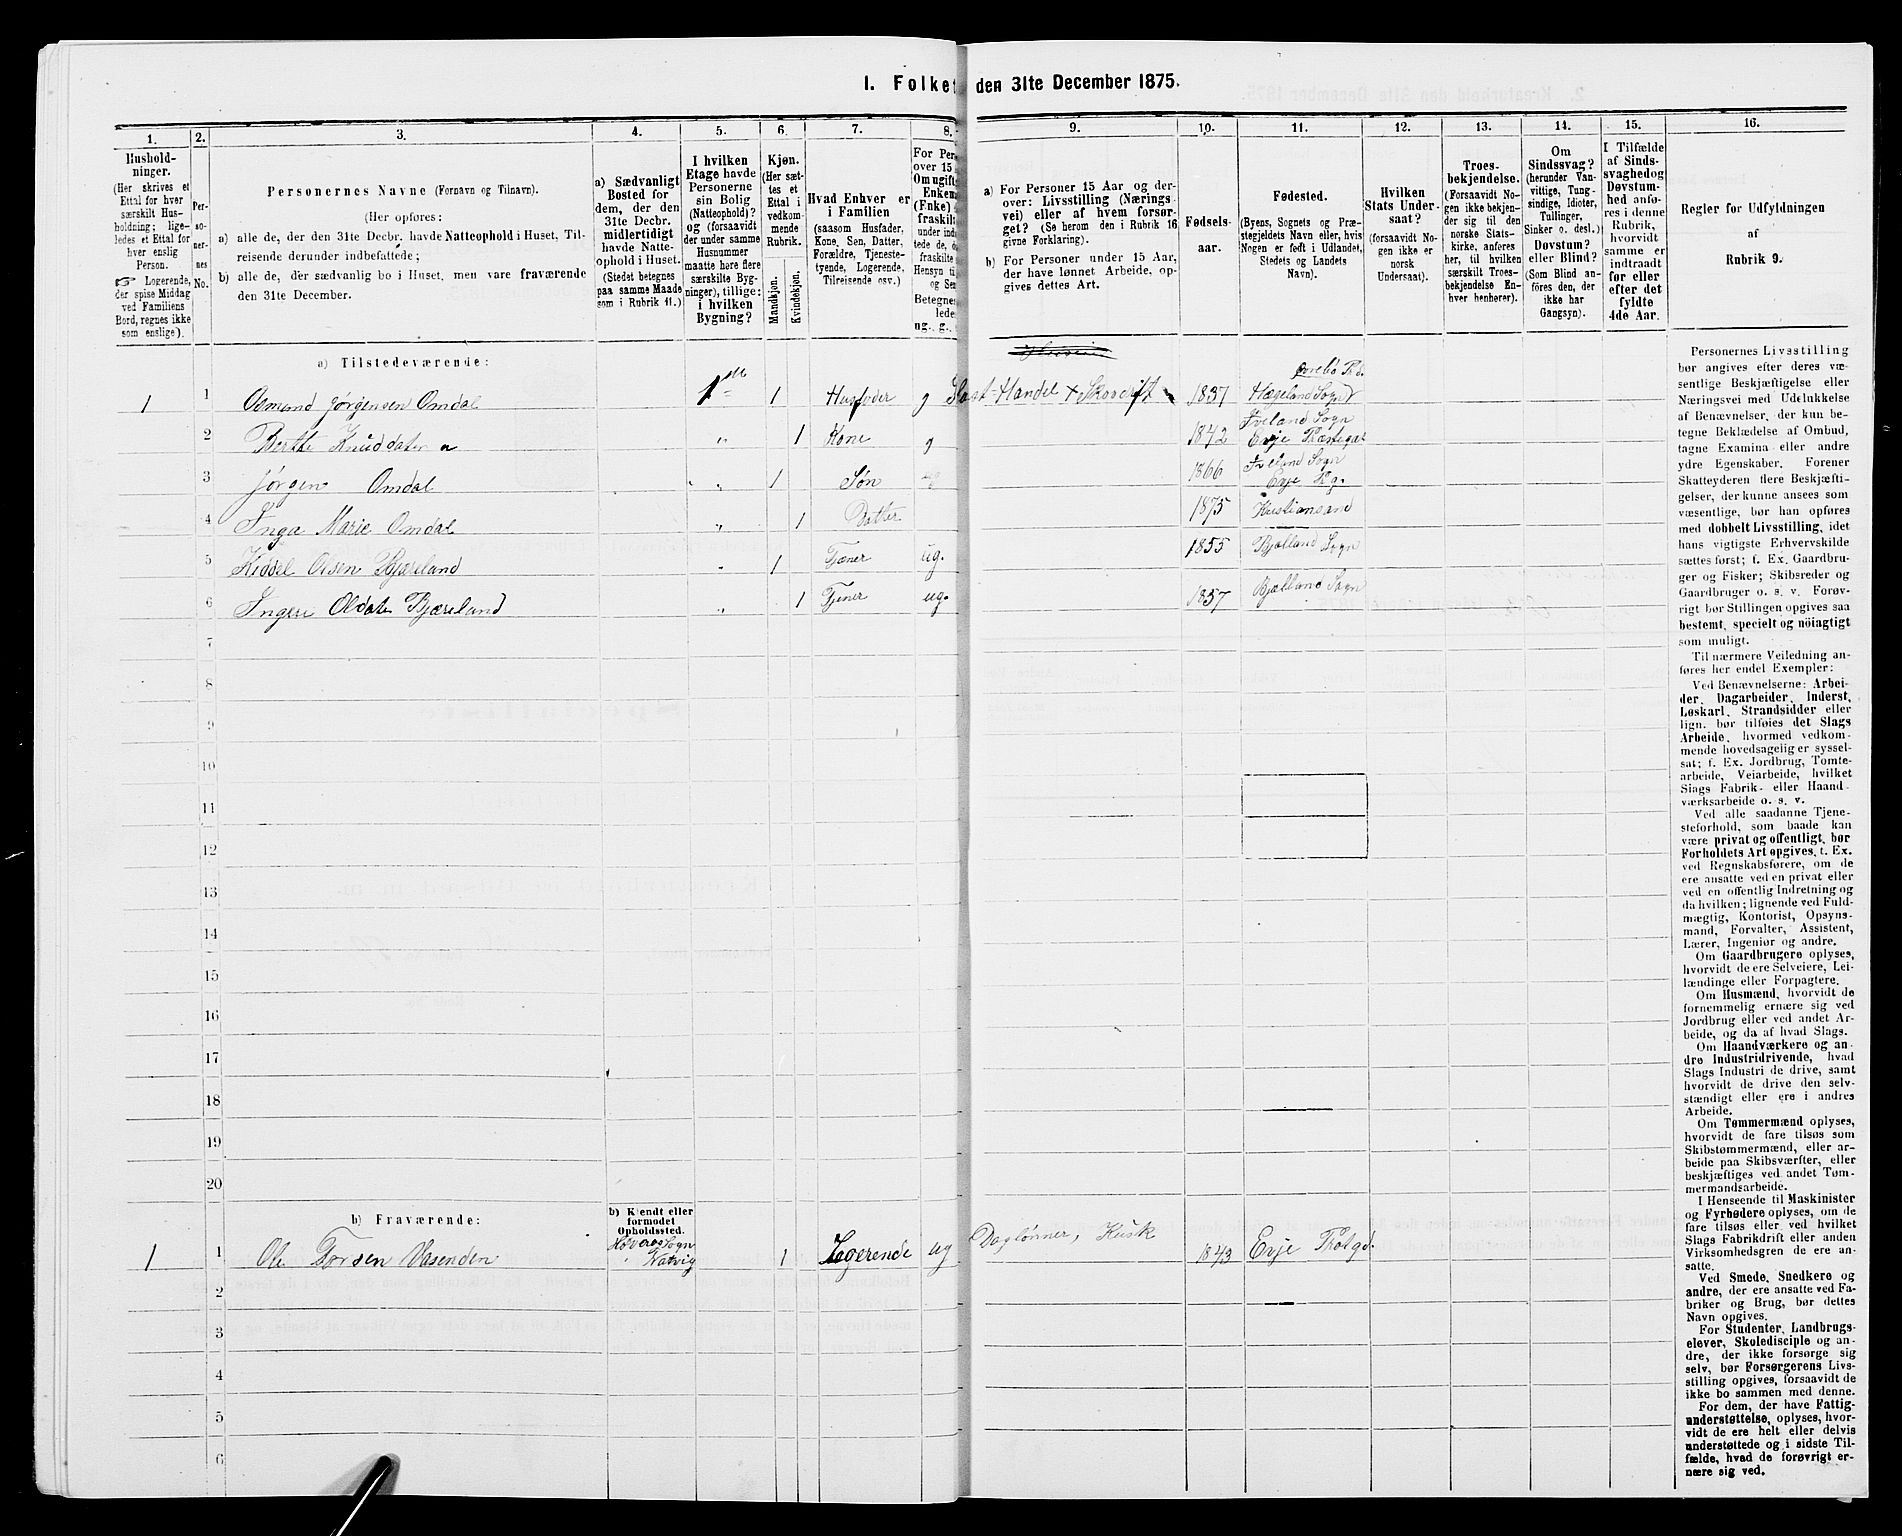 I. Folket
den 31te December 1875.
1.
2.
3.
4.
5.
6.
7.
8.
9.
10.
11.
12.
13.
14.
15.
16.
Hushold-
ninger.
(Her skrives et
Ettal for hver
særskilt Hus-
holdning; lige-
ledes et Ettal for
hver enslig
Person.
☞ Logerende,
der spise Middag
ved Familiens
Bord, regnes ikke
som enslige).
Per-
so-
ner-
nes
No.
Personernes Navne (Fornavn og Tilnavn).
(Her opføres:
a) alle de, der den 31te Decbr. havde Natteophold i Huset, Til-
reisende derunder indbefattede;
b) alle de, der sædvanlig bo i Huset, men vare fraværende
den 31te December.
a) Sædvanligt
Bosted for
dem, der den
31te Decbr.
midlertidigt
havde Natte-
ophold i Huset.
(Stedet betegnes
paa samme Maade
som i Rubrik 11.)
I hvilken
Etage havde
Personerne
sin Bolig
(Natteophold)?
og (forsaavidt
der under samme
Husnummer
maatte høre flere
særskilte Byg-
ninger), tillige:
i hvilken
Bygning?
Kjøn.
(Her sæt-
tes et
Ettal i
vedkom-
mende
Rubrik.
Mandkjøn.
Kvindekjøn.
Hvad Enhver er
i Familien
(saasom Husfader,
Kone, Søn, Datter,
Forældre, Tjeneste-
tyende, Logerende,
Tilreisende osv.)
For Per
over 15
Om ugift
Enken
(Enke)
fraskilt
under ind
tede de,
fraskilte
Hensyn ti
og Se
Betegne
lede
ug., g.,
a) For Personer 15 Aar og der-
over: Livsstilling (Nærings-
vei) eller af hvem forsør-
get? (Se herom den i Rubrik 16
givne Forklaring).
b) For Personer under 15 Aar,
der have lønnet Arbeide, op-
gives dettes Art.
Fødsels-
aar.
Fødested.
(Byens, Sognets og Præ-
stegjeldets Navn eller, hvis
Nogen er født i Udlandet,
Stedets og Landets
Navn).
Hvilken
Stats Under-
saat?
(forsaavidt No-
gen ikke er
norsk
Undersaat).
Troes-
bekjendelse.
(Forsaavidt No-
gen ikke bekjen-
der sig til den
norske Stats-
kirke, anføres
her, til hvilken
særskilt Troes-
bekjendelse En-
hver henhører).
Om
Sindssvag?
(herunder Van-
vittige, Tung-
sindige, Idioter,
Tullinger,
Sinker o. desl.)
Døvstum?
eller Blind?
(Som Blind an-
føres den, der
ikke har
Gangsyn).
I Tilfælde
af Sinds-
svaghed og
Døvstum-
hed anfø-
res i denne
Rubrik,
hvorvidt
samme er
indtraadt
før eller
efter det
fyldte
4de Aar.
Regler for Udfyldningen
af
Rubrik 9.
a) Tilstedeværende:
1 1 Osmund Jørgensen Omdal 1 1 Husfader g Handel + Skovdrift 1837 Hægeland Sogn
2 Berthe Knudsdater „ „ 1 Kone g 1842 Iveland Sogn Evje
3 Jørgen Omdal „ 1 Søn 1866 Iveland Sogn Evje Pg.
4 Inga Marie Omdal „ 1 Datter 1875 Kristiansand
5 Kiddel Olsen Bjæreland „ 1 Tjæner ug. 1855 Bjælland Sogn
6 Ingeri Olsdater Bjæreland „ 1 Tjener ug. 1857 Bjælland Sogn
7
8
9
10
11
12
13
14
15
16
17
18
19
20
b) Fraværende:
b) Kjendt eller
formodet
Opholdssted.
1 1 Ole Torsen Vasenden Sogn 1 Logerende ug Daglønner, Kusk 1843 Evje
2
3
4
5
6
Personernes Livsstilling
bør angives efter deres væ-
sentlige Beskjæftigelse eller
Næringsvei med Udelukkelse
af Benævnelser, der kun be-
tegne Beklædelse af Ombud,
tagne Examina eller andre
ydre Egenskaber. Forener
Skatteyderen flere Beskjæfti-
gelser, der kunne ansees som
væsentlige, bør han opføres
med dobbelt Livsstilling, idet
hans vigtigste Erhvervskilde
sættes først; f. Ex. Gaardbru-
ger og Fisker; Skibsreder og
Gaardbruger o. s. v. Forøv-
rigt bør Stillingen opgives saa
bestemt, specielt og nøiagtigt
som muligt.
Til nærmere Veiledning an-
føres her endel Exempler:
Ved Benævnelserne: Arbei-
der, Dagarbeider, Inderst,
Løskarl, Strandsidder eller
lign. bør tilføies det Slags
Arbeide, hvormed vedkom-
mende hovedsagelig er syssel-
sat; f. Ex. Jordbrug, Tomte-
arbeide, Veiarbeide, hvilket
Slags Fabrik- eller Haand-
værksarbeide o. s. v.
Ved alle saadanne Tjene-
steforhold, som baade kan
være privat og offentligt, bør
Forholdets Art opgives, f. Ex.
ved Regnskabsførere, om de
ere ansatte ved en privat eller
ved en offentlig Indretning og
da hvilken; lignende ved Fuld-
mægtig, Kontorist, Opsyns-
mand, Forvalter, Assistent,
Lærer, Ingeniør og andre.
Om Gaardbrugere oplyses,
hvorvidt de ere Selveiere, Lei-
lændinge eller Forpagtere.
Om Husmænd, hvorvidt de
fornemmelig ernære sig ved
Jordbrug eller ved andet Ar-
beide, og da af hvad Slags.
Om Haandværkere og an-
dre Industridrivende, hvad
Slags Industri de drive, samt
hvorvidt de drive den selv-
stændigt eller ere i andres
Arbeide.
Om Tømmermænd oplyses,
hvorvidt de fare tilsøs som
Skibstømmermænd, eller ar-
beide paa Skibsværfter, eller
beskjæftiges ved andet Tøm-
mermandsarbeide.
I Henseende til Maskinister
og Fyrbødere oplyses, om de
fare tilsøs eller ved hvilket
Slags Fabrikdrift eller anden
Virksomhedsgren de ere an-
satte.
Ved Smede, Snedkere og
andre, der ere ansatte ved Fa-
briker og Brug, bør dettes
Navn opgives.
For Studenter, Landbrugs-
elever, Skoledisciple og an-
dre, der ikke forsørge sig
selv, bør Forsørgerens Livs-
stilling opgives, forsaavidt de
ikke bo sammen med denne.
For dem, der have Fattig-
understøttelse, oplyses, hvor-
vidt de ere helt eller delvis
understøttede og i sidste Til-
fælde, hvad de forøvrigt er-
nære sig ved.